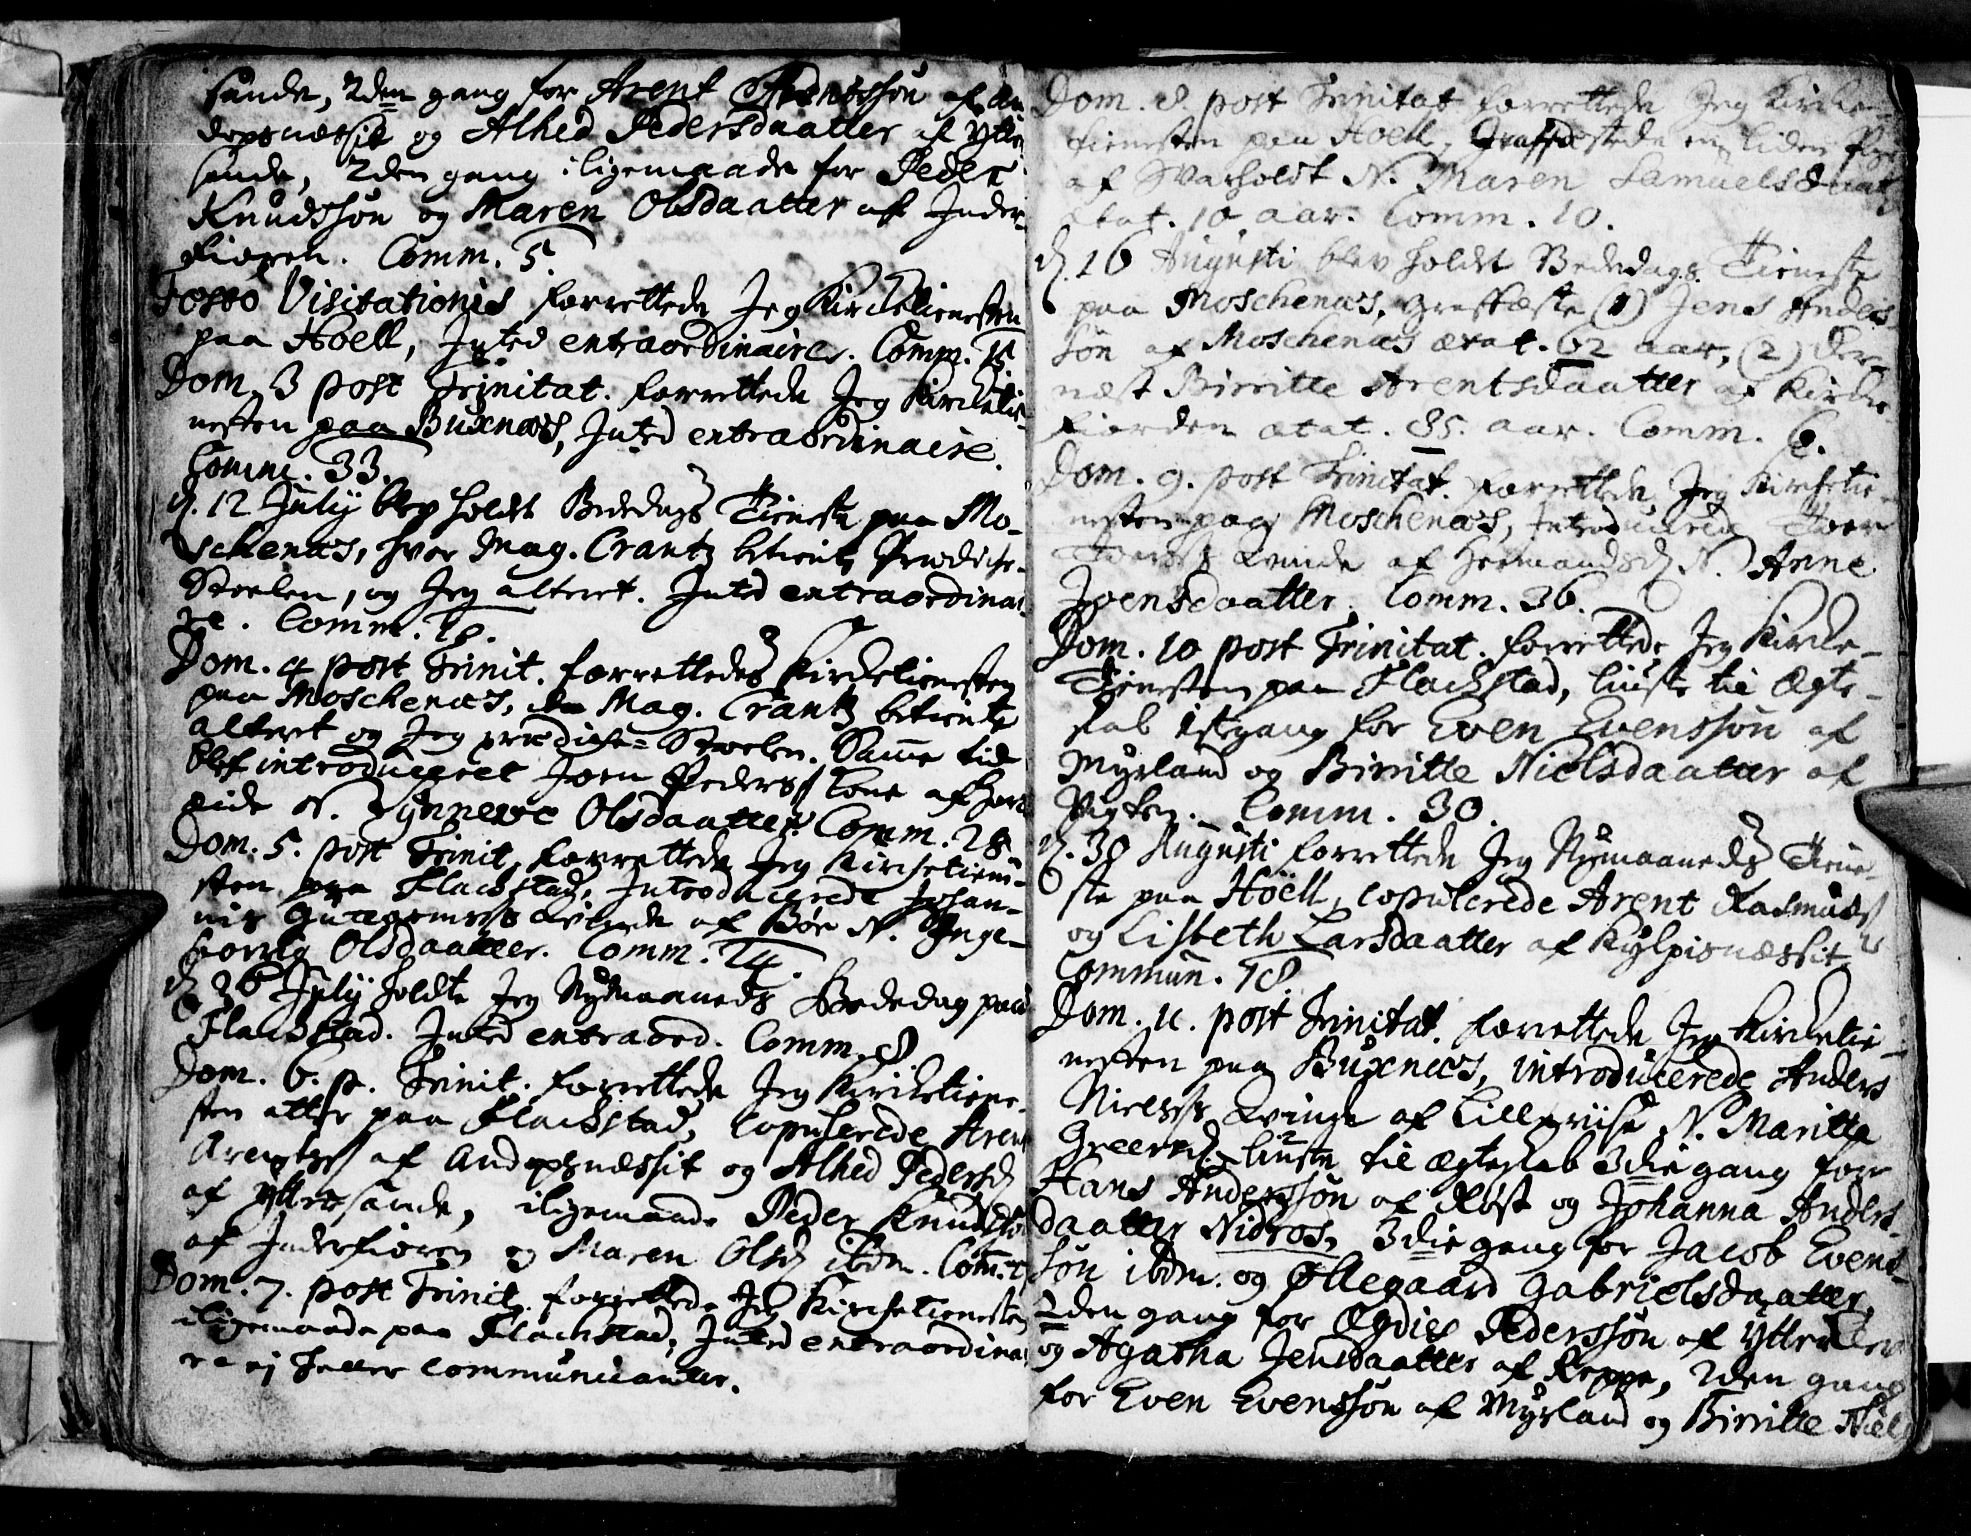 sande, 2den gang for Arent Arentssøn af An
dopsnæssit og Alhed Pedersdaatter af Yttre
sande, 2den gang iligemaade for Peder
Knudssøn og Maren Olsdaatter af Inder-
fioren. Comm. 5.
Festo Visitationis forrettede Jeg Kircketienesten
paa Hoell, Inted extraordinaire. Comm.
Dom. 3 post Trinitat. forrettede Jeg Kircketie-
nesten paa Buxnæs, Inted extraordinaire.
Comm. 33.
d. 12 July blev holdt Bededags Tieneste paa Mo-
schenæs, hvor Mag. Crantz betiente Prædicke-
Stoelen, og Jeg alteret. Inted extraordinai-
re. Comm. 18.
Dom. 4 post Trinit. forrettedes Kircketienesten
paa Moschenæs, da Mag. Crantz betiente
alteret og Jeg prædicke-Stoelen. Samme tid
blef introduceret Joen Pederss Kone af
eide N. Synneve Olsdaatter. Comm. 28
Dom. 5. post Trinit. forrettede Jeg Kircketiene-
sten paa Flachstad, Introducerede Johan-
nis Guttormss Kvinde af Bøe N. Inge-
borrig Olsdaatter. Comm. 24.
d. 26 July holdte Jeg Nymaaneds Bededag paa
Flachstad. Inted extraord. Comm. 8
Dom. 6. p. Trinit. forrettede Jeg Kircketiene-
sten atter paa Flachstad, Copulerede Arent
Arentss af Andopsnæssit og Alhed Pedersd
af Yttresande, iligemaade Peder Knudssøn
af Inderfioren og Maren Olsd ibdm. Com.
Dom. 7. post Trinit. forrettede Jeg Kircketienesten
iligemaade paa Flachstad, Inted extraordinai
re ej heller communicanter.
Dom. 8. post Trinitat forrettede Jeg Kircke-
tienesten paa Hoell, Graffæstede en liden Pige
af Svarholdt N. Maren Samuelsdaat
ætat. 10 aar. Comm. 10.
d. 16 Augusti blev holdt Bededags Tieneste
paa Moschenæs, Graffæste (1) Jens Anders
søn af Moschenæs ætat. 62 aar, (2) der-
næst Birritte Arentsdaatter af Kircke-
fiorden ætat. 85. aar. Comm. 6.
Dom. 9. post Trinitat. forrettede Jeg Kircketie-
nesten paa Moschenæs, Introducerede Iver
Kvinde af N. Anne
Joensdaatter. Comm. 36.
Dom. 10 post Trinitat. forrettede Jeg Kircke-
Tienesten paa Flachstad, liuste til Ægte-
skab 1st gang for Even Evenssøn af
Myrland og Birritte Nielsdaatter af
Vigten. Comm. 30.
d. 30 Augusti forrettede Jeg Nymaaneds Tiene-
ste paa Höell, copulerede Arent Rasmuss
og Lisbeth Larsdaatter af Kylpisnæssit
Commun. 18.
Dom. 11. post Trinitat. forrettede Jeg Kircketie-
nesten paa Buxnæs, introducerede Anders
Nielsss Kvinde af Lilleviise N. Maritte
Greersd. liuste til Ægteskab 3die gang for
Hans Anderssøn af Røst og Johanna Anders-
daatter Nidros, 3die gang for Jacob Evens-
søn ibdm. og Øllegaard Gabrielsdaatter,
2den gang for Ægdies Pederssøn af
og Agatha Jensdaatter af Reppe, 2den gang
for Even Evenssøn af Myrland og Birritte Niel